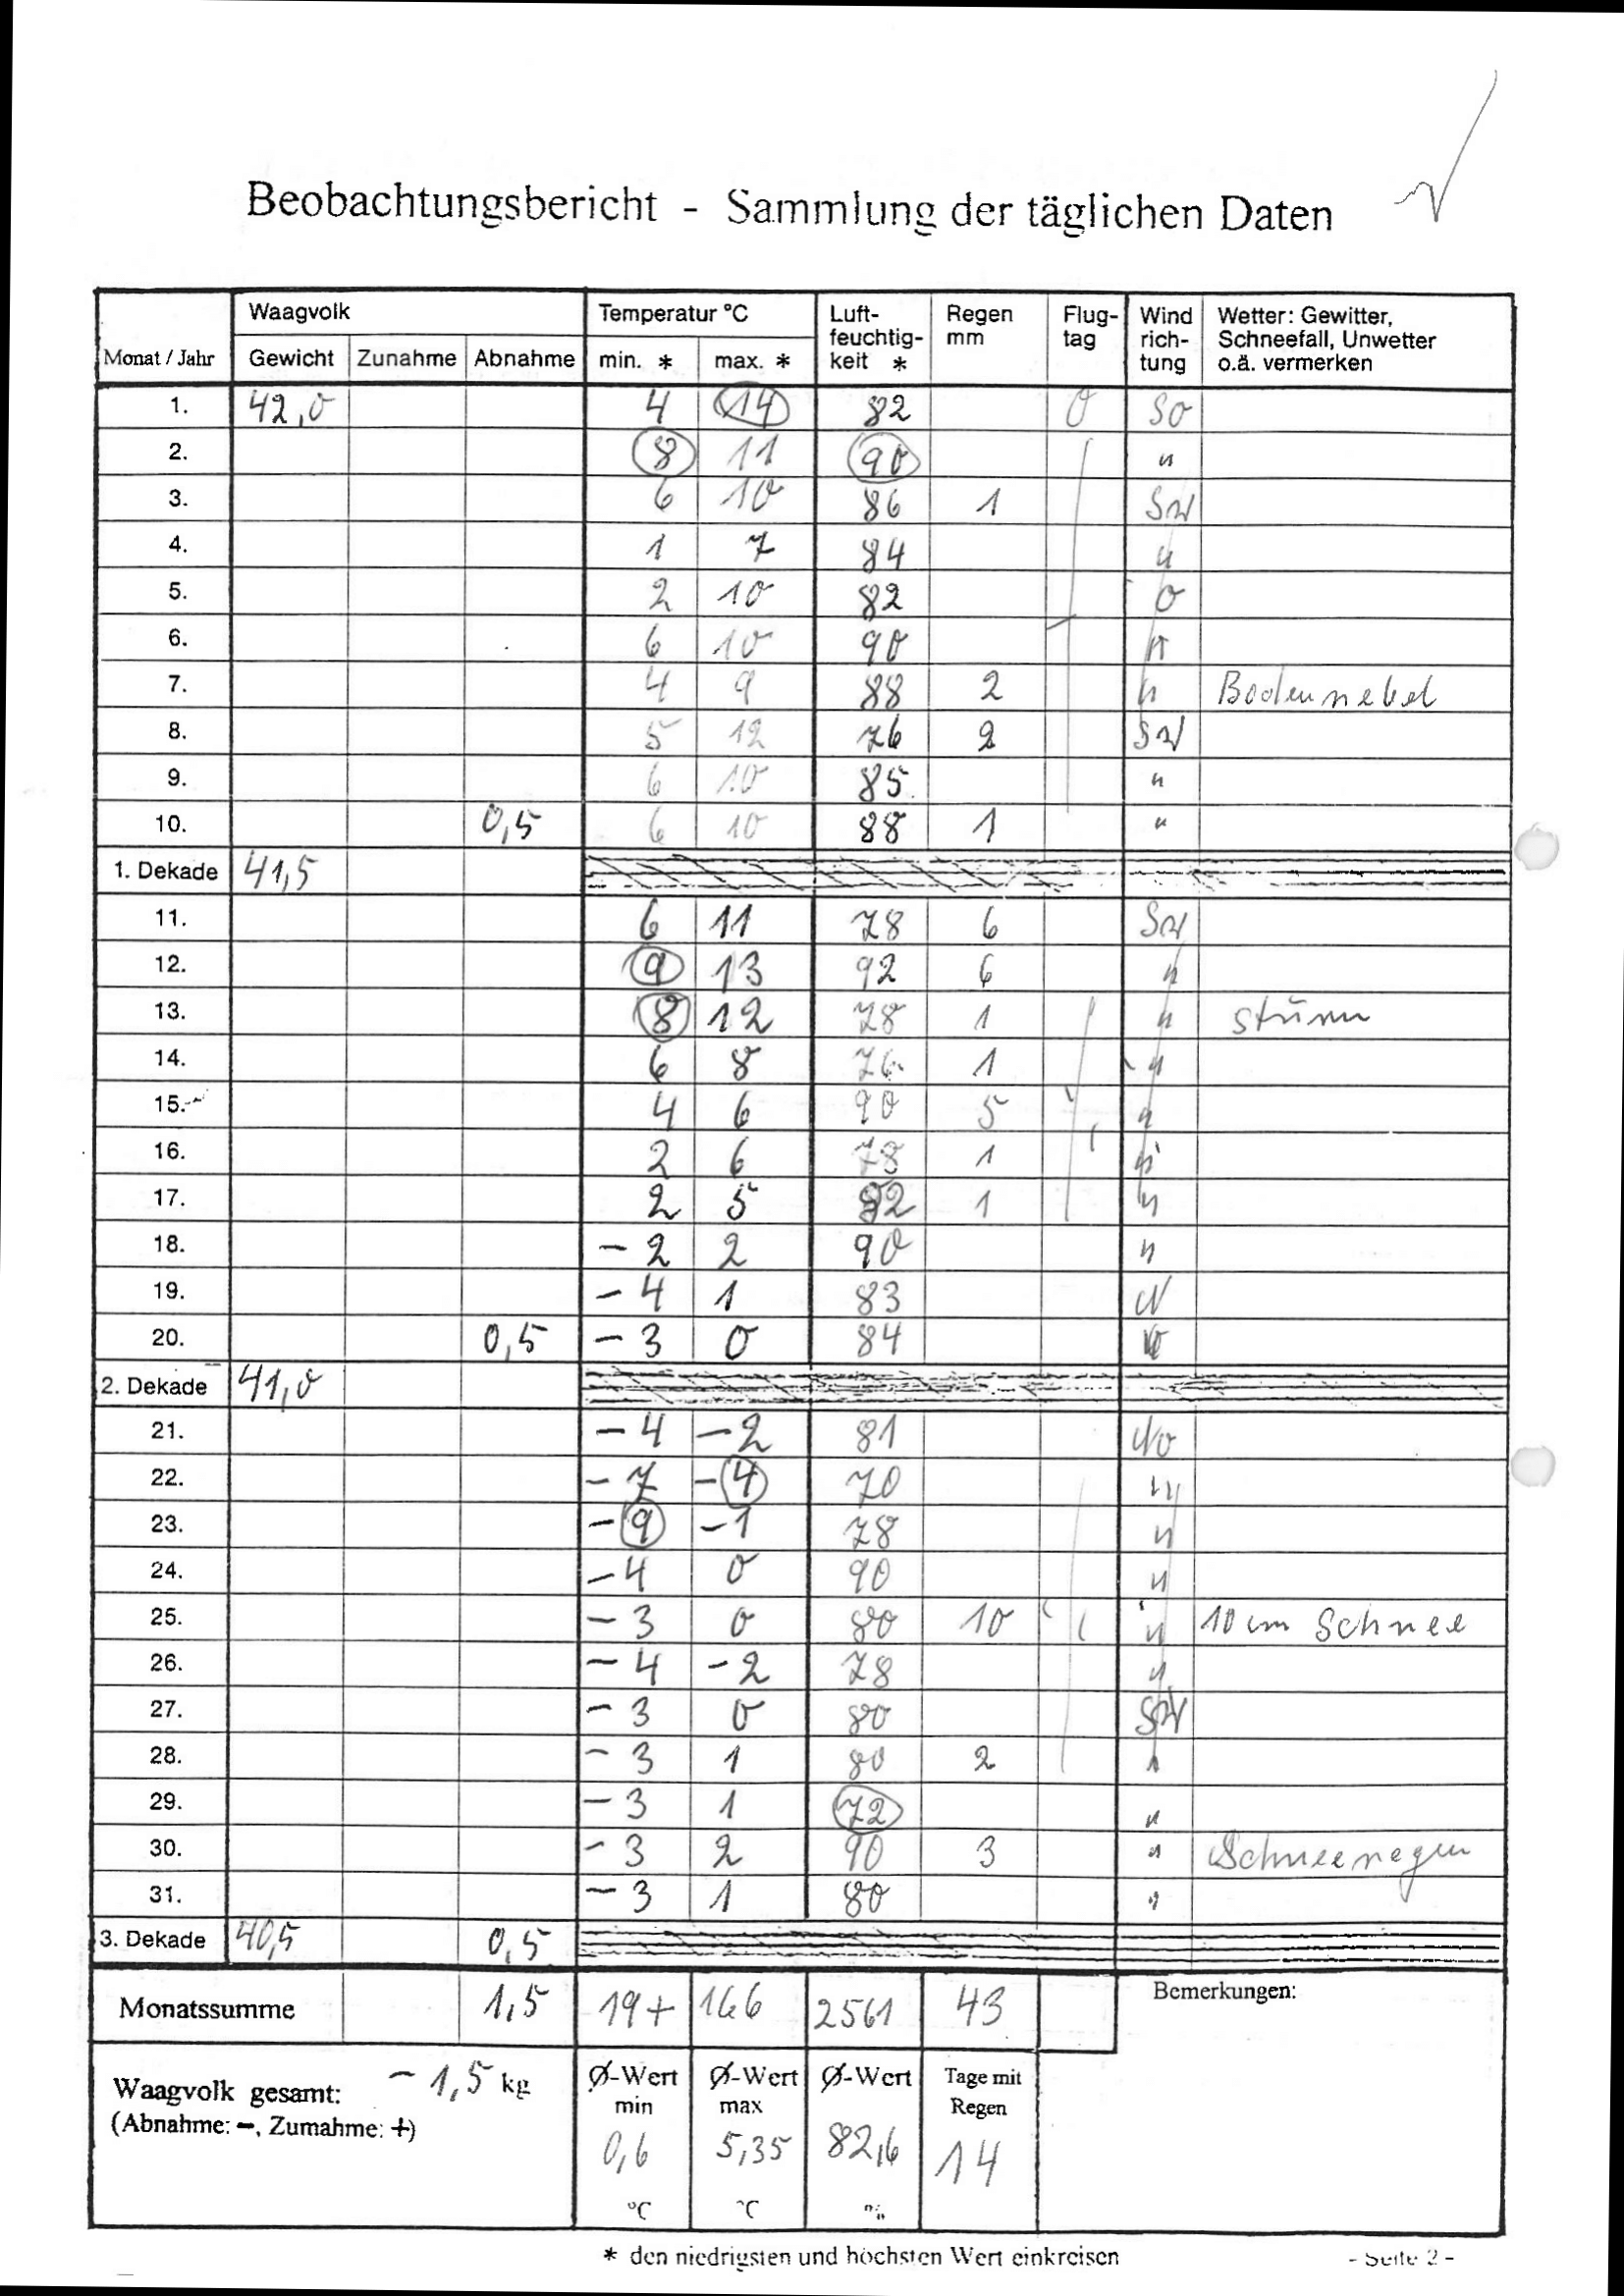 Beobachtungsbericht - Sammlung der täglichen Daten
Monat / Jahr Waagvolk Temperatur °C Luft-feuchtig-keit * Regen mm Flug-tag Wind rich-tung Wetter: Gewitter, Schneefall, Unwetter o.ä. vermerken
Gewicht Zunahme Abnahme min. * max. *
1. 42,0 4 14 82 0 SO
2. 8 11 90 "
3. 6 10 86 1 SW
4. 1 7 84 "
5. 2 10 82 O
6. 6 10 90 "
7. 4 9 88 2 " Bodennebel
8. 5 12 76 2 SW
9. 6 10 85 "
10. 0,5 6 10 88 1 "
1. Dekade 41,5
11. 6 11 78 6 SW
12. 9 13 92 6 "
13. 8 12 78 1 " Sturm
14. 6 8 76 1 "
15. 4 6 90 5 "
16. 2 6 78 1 "
17. 2 5 82 1 "
18. -2 2 90 "
19. -4 1 83 W
20. 0,5 -3 0 84
2. Dekade 41,0
21. -4 -2 81 NO
22. -7 -4 70 "
23. -9 -1 78 "
24. -4 0 90 "
25. -3 0 80 10 " 10 cm Schnee
26. -4 -2 78 "
27. -3 0 80 SW
28. -3 1 80 2 "
29. -3 1 72 "
30. -3 2 90 3 " Schneeregen
31. -3 1 80 "
3. Dekade 40,5 0,5
Monatssumme 1,5 19+ 166 2561 43 Bemerkungen:
Waagvolk gesamt: -1,5 kg
(Abnahme: -, Zumahme: +)
Ø-Wert min 0,6 °C
Ø-Wert max 5,35 °C
Ø-Wert 82,6 %
Tage mit Regen 14
* den niedrigsten und höchsten Wert einkreisen
- Seite 2 -